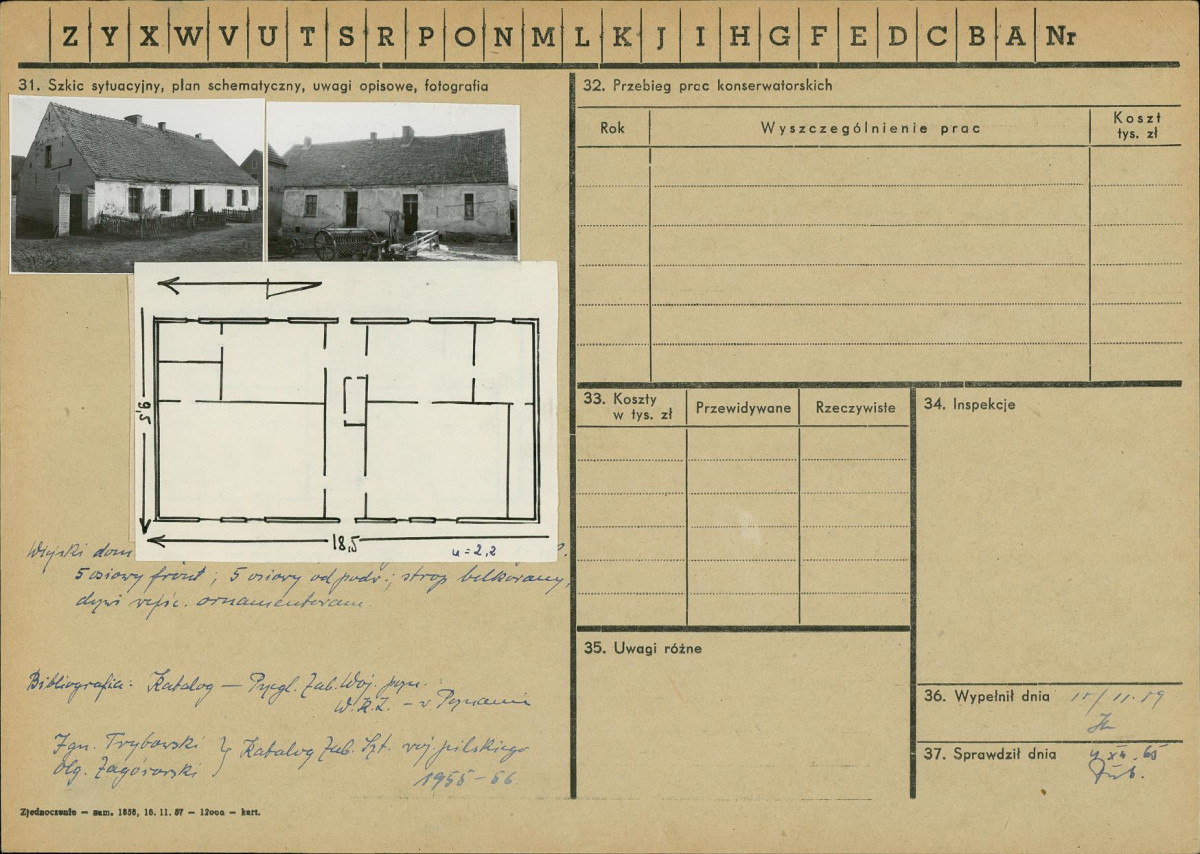 Z Y X W V U T S R P O N M L K J I H G F E D C B A Nr
31. Szkic sytuacyjny, plan schematyczny, uwagi opisowe, fotografia
9,5
18,5
u = 2,2
Wiejski dom
5 osiowy front; 5 osiowy od podw.; strop belkowany,
drzwi wejśc. ornamentowan.
Bibliografia: Katalog — Przegl. Zab. Woj. pozn.
W.K.Z. — v Poznaniu
Ign. Trybowski } Katalog Zab. Szt. woj. pilskiego
Olg. Zagórowski
1955-56
Zjednoczenie — zam. 1858, 16. 11. 57 — 12000 — kart.
32. Przebieg prac konserwatorskich
Rok
Wyszczególnienie prac
Koszt
tys. zł
33. Koszty
w tys. zł
Przewidywane
Rzeczywiste
34. Inspekcje
35. Uwagi różne
36. Wypełnił dnia
11.59
37. Sprawdził dnia
XII. 65